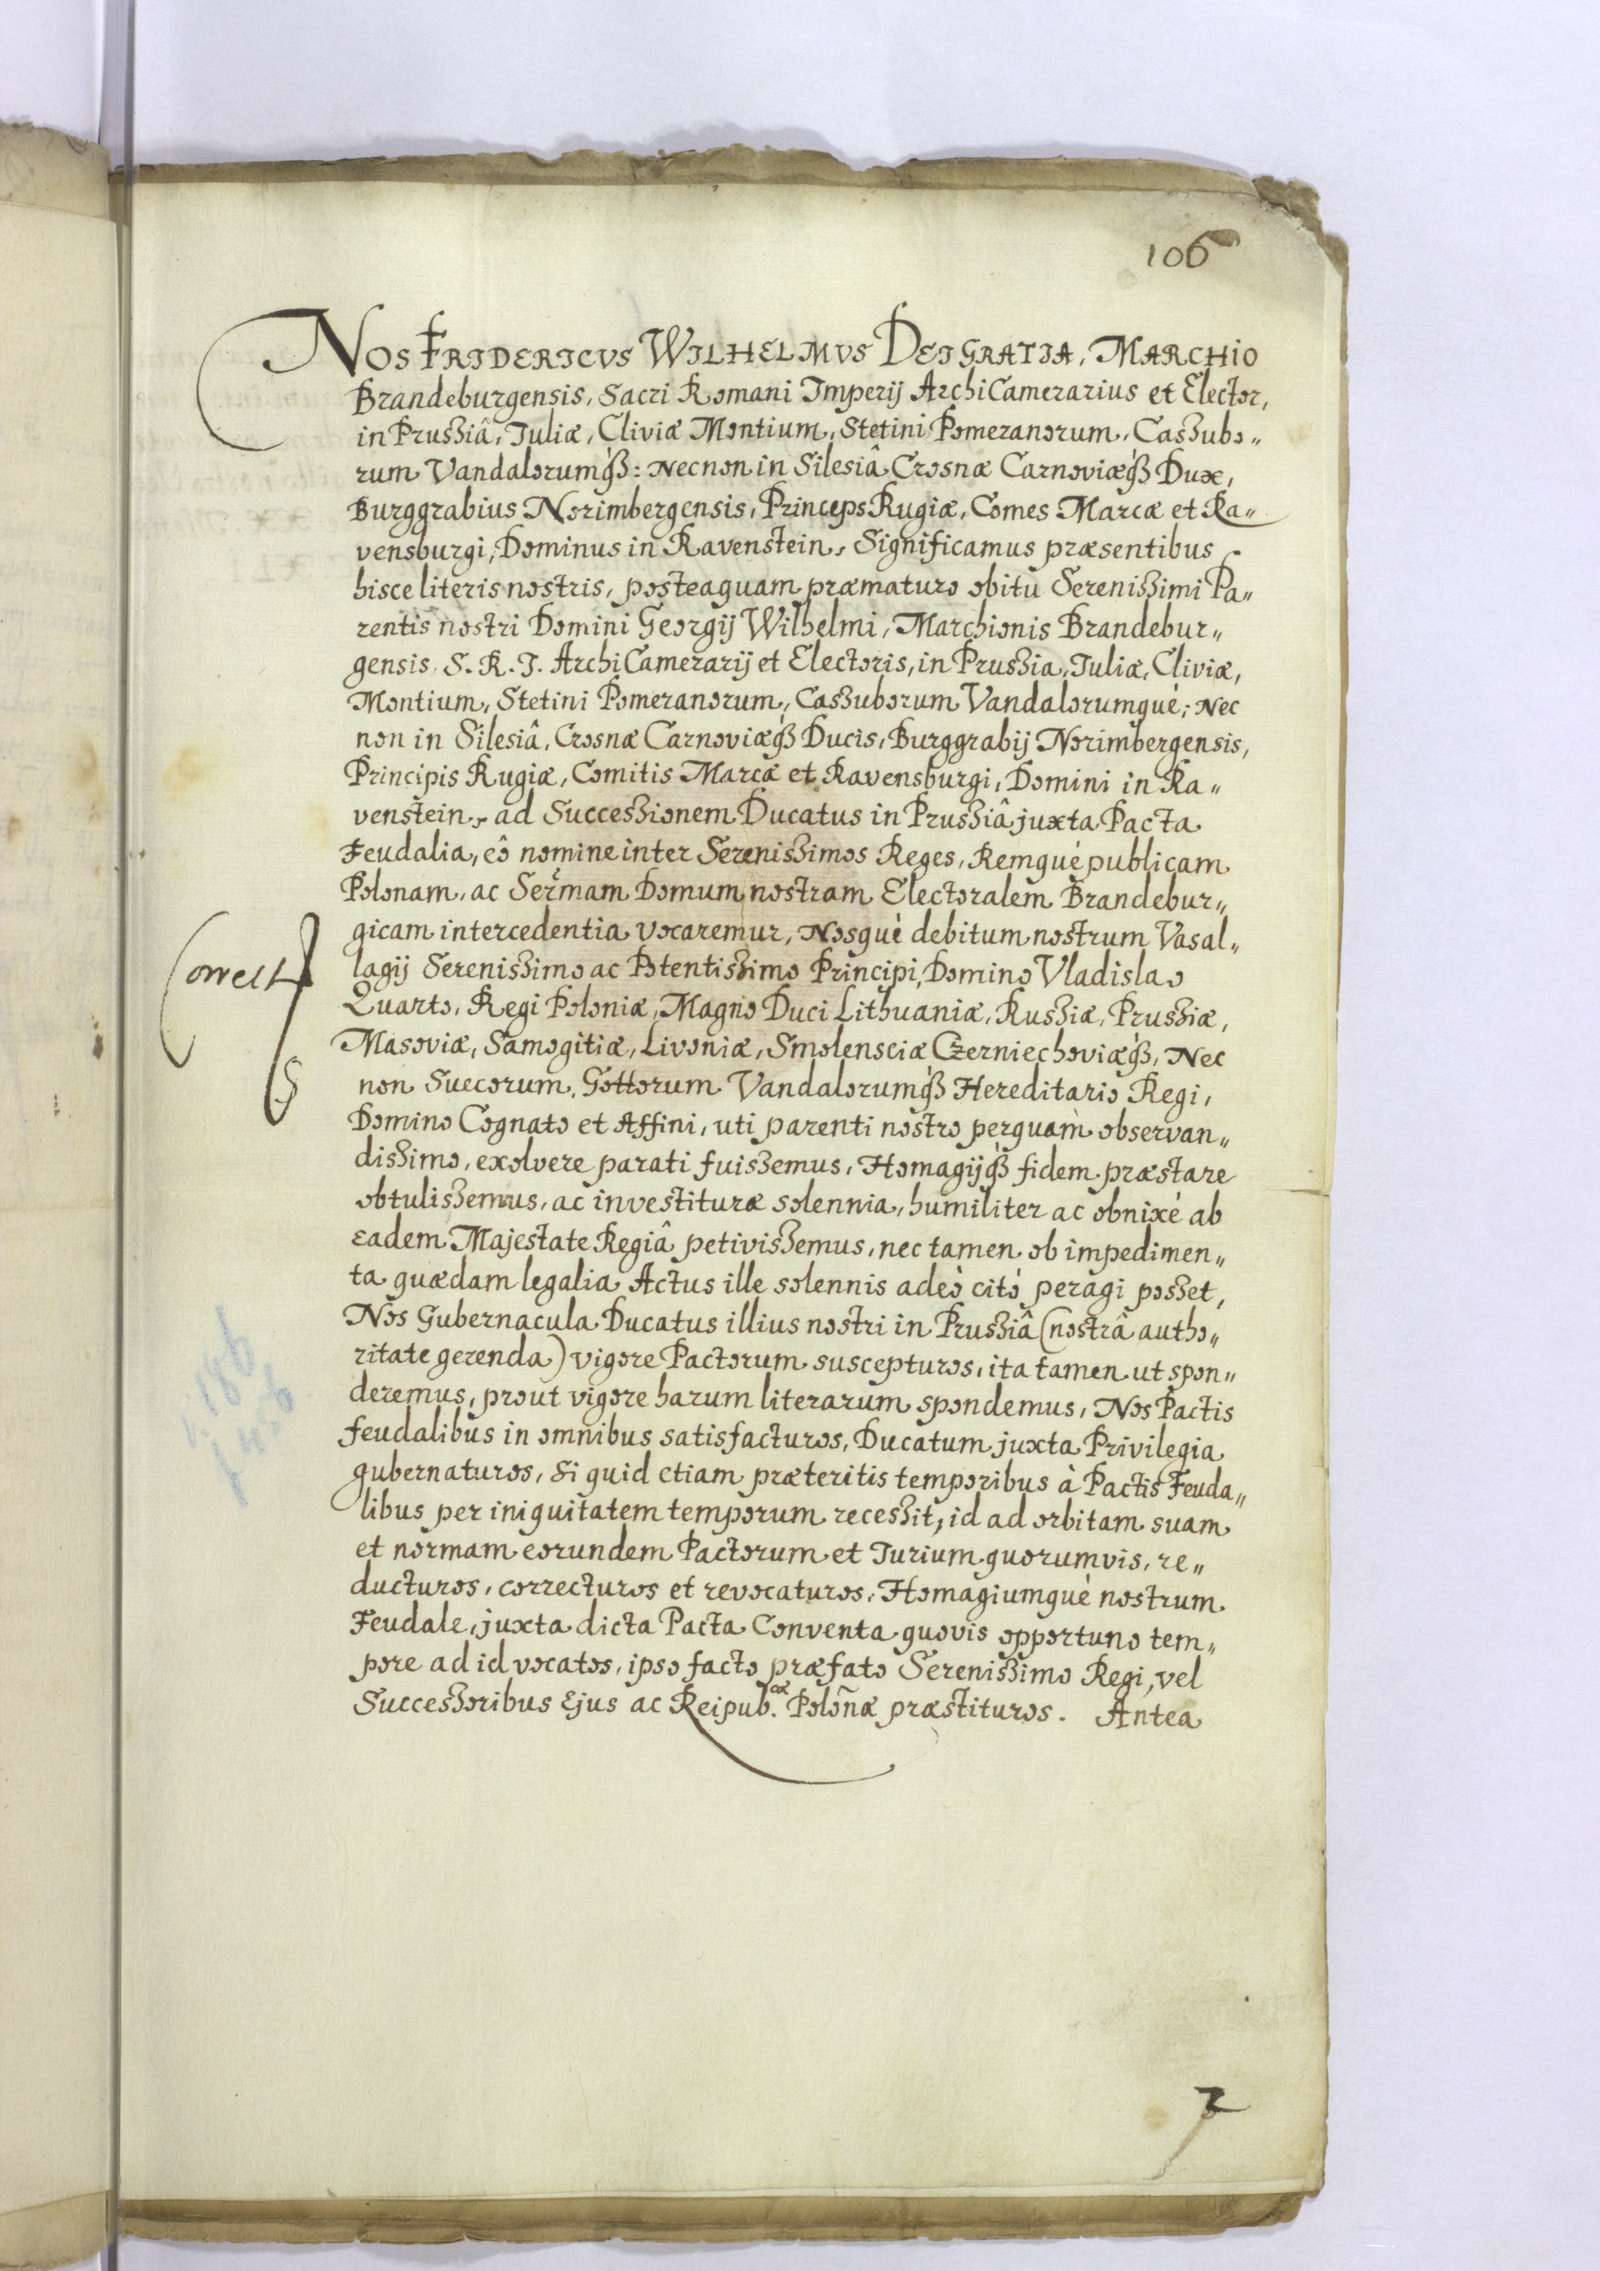 106
NOS FRIDERICVS WILHELMVS DEI GRATIA, MARCHIO
Brandeburgensis, Sacri Romani Imperij ArchiCamerarius et Elector,
in Prussiâ, Juliæ, Cliviæ Montium, Stetini Pomeranorum, Cassubo„
rum Vandalorumq́ꝫ: Necnon in Silesiâ Crosnæ Carnoviæq́ꝫ Dux,
Burggrabius Norimbergensis, Princeps Rugiæ, Comes Marcæ et Ra„
vensburgi, Dominus in Ravenstein, Significamus præsentibus
hisce literis nostris, posteaquam præmaturo obitu Serenissimi Pa„
rentis nostri Domini Georgij Wilhelmi, Marchionis Brandebur„
gensis S. R. I. ArchiCamerarij et Electoris, in Prussia, Juliæ, Cliviæ,
Montium, Stetini Pomeranorum, Cassuborum Vandalorumqué; Nec
non in Silesiâ, Crosnæ Carnoviæq́ꝫ Ducis, Burggrabij Norimbergensis,
Principis Rugiæ, Comitis Marcæ et Ravensburgi, Domini in Ra„
venstein, ad Successionem Ducatus in Prussiâ juxta Pacta
Feudalia, eô nomine inter Serenissimos Reges, Remqué publicam
Polonam, ac Sermam Domum nostram Electoralem Brandebur„
gicam intercedentia vocaremur, Nosqué debitum nostrum Vasal„
lagij Serenissimo ac Potentissimo Principi, Domino Vladislao
Quarto, Regi Poloniæ, Magno Duci Lithuaniæ, Russiæ, Prussiæ,
Masoviæ, Samogitiæ, Livoniæ, Smolensciæ Czerniechoviæq́ꝫ, Nec
non Suecorum, Gottorum Vandalorumq́ꝫ Hereditario Regi,
Domino Cognato et Affini, uti parenti nostro perquàm observan„
dissimo, exolvere parati fuissemus, Homagijq́ꝫ fidem præstare
obtulissemus, ac investituræ solennia, humiliter ac obnixé ab
eadem Majestate Regiâ petivissemus, nec tamen ob impedimen„
ta quædam legalia Actus ille solennis adeò citó peragi posset,
Nos Gubernacula Ducatus illius nostri in Prussiâ (nostrâ autho„
ritate gerenda) vigore Pactorum suscepturos, ita tamen ut spon„
deremus, prout vigore harum literarum spondemus, Nos Pactis
feudalibus in omnibus satisfacturos, Ducatum juxta Privilegia
gubernaturos, Si quid etiam præteritis temporibus à Pactis Feuda„
libus per iniquitatem temporum recessit, id ad orbitam suam
et normam eorundem Pactorum et Jurium quorumvis, re„
ducturos, correcturos et revocaturos, Homagiumquè nostrum
Feudale, juxta dicta Pacta Conventa quovis opportuno tem„
pore ad id vocatos, ipso facto præfato Serenissimo Regi, vel
Successoribus Ejus ac Reipub.æ Polõnæ præstituros. Antea